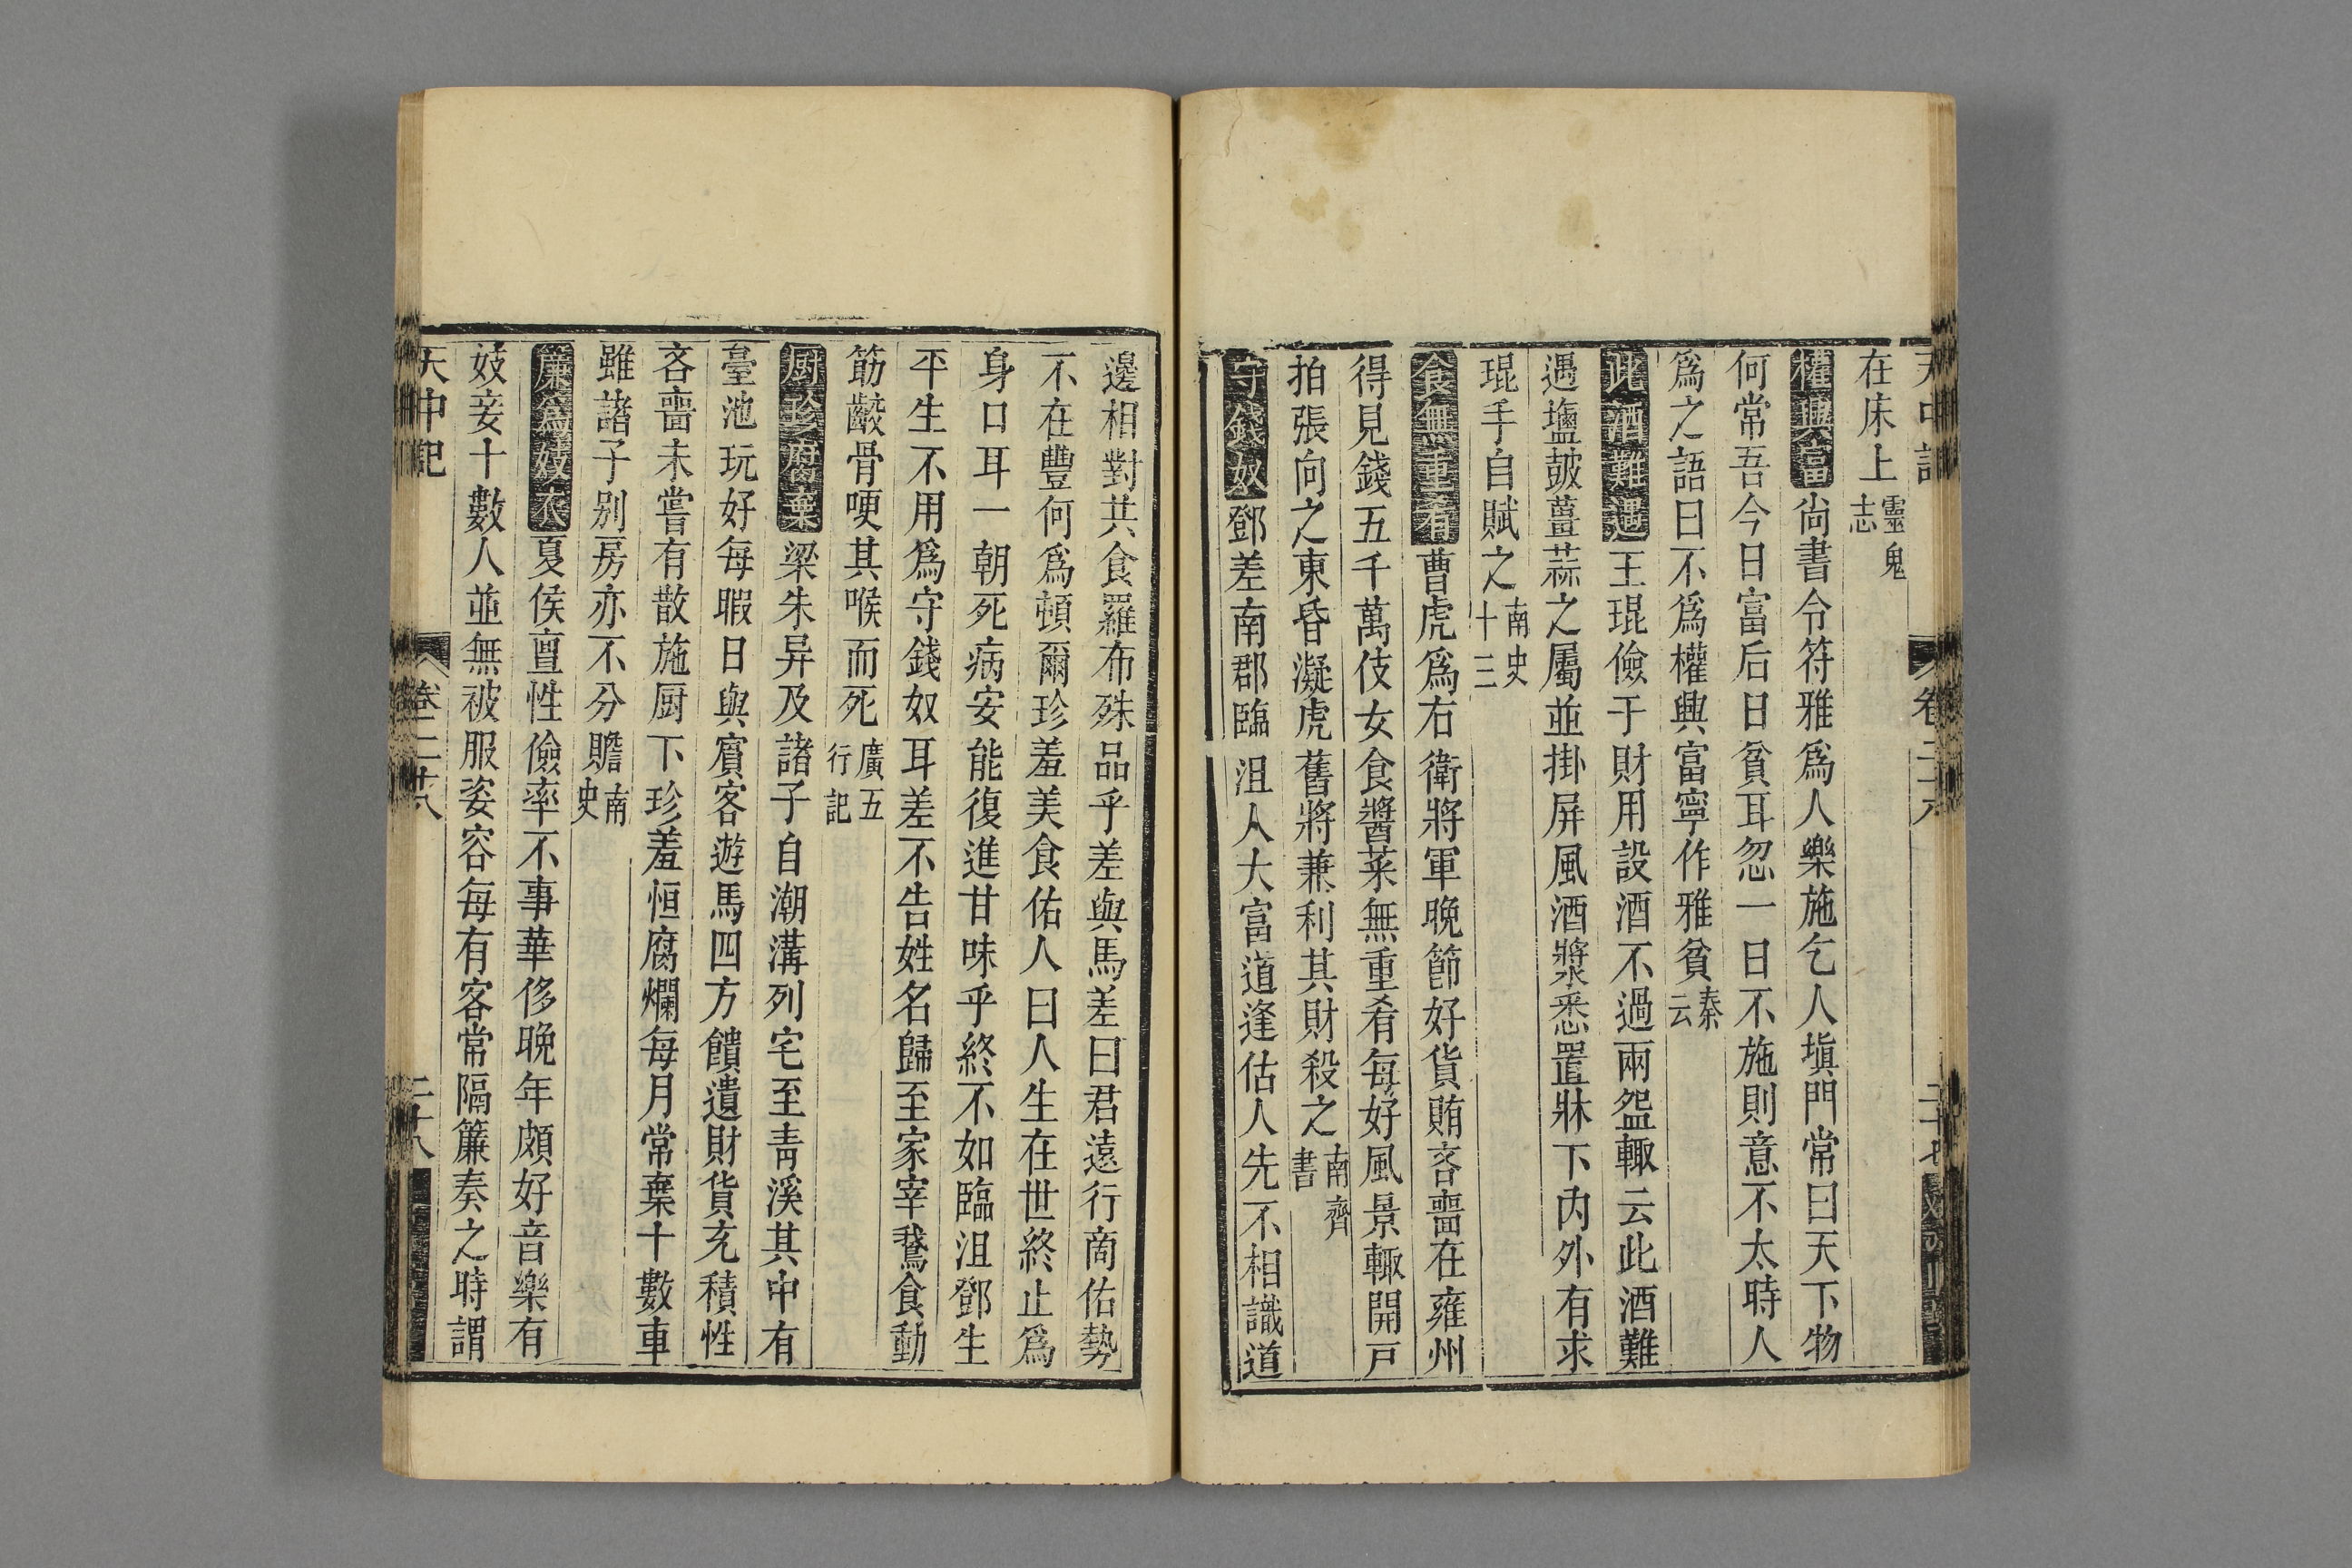 天中記
卷二十八
二十七
在床上靈鬼志
權興富尚書令符雅爲人樂施乞人塡門常曰天下物
何常吾今日富后日貧耳忽一日不施則意不太時人
爲之語曰不爲權興富寧作雅貧秦云
此酒難遇王琨儉于財用設酒不過兩盌輙云此酒難
遇塩豉薑蒜之屬並掛屏風酒漿悉置牀下內外有求
琨手自賦之南史十三
食無重肴曹虎爲右衛將軍晩節好貨賄吝嗇在雍州
得見錢五千萬伎女食醬菜無重肴每好風景輙開戸
拍張向之東昏凝虎舊將兼利其財殺之南齊書
守錢奴鄧差南郡臨沮人大富道逢估人先不相識道
邊相對共食羅布殊品乎差與馬差曰君遠行商佑勢
不在豐何爲頓爾珍羞美食佑人曰人生在世終止爲
身口耳一朝死病安能復進甘味乎終不如臨沮鄧生
平生不用爲守錢奴耳差不告姓名歸至家宰鵞食動
筯齩骨哽其喉而死廣五行記
厨珍腐棄梁朱异及諸子自潮溝列宅至靑溪其中有
臺池玩好每暇日與賓客遊馬四方饋遺財貨充積性
吝嗇未嘗有散施厨下珍羞恒腐爛每月常棄十數車
雖諸子別房亦不分贍南史
簾爲妓衣夏侯亶性儉率不事華侈晩年頗好音樂有
妓妾十數人並無被服姿容每有客常隔簾奏之時謂
天中記
卷二十八
二十八